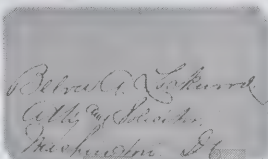 Belva A. Lockwood.
Atty and Solicitor.
Washington. D.C.